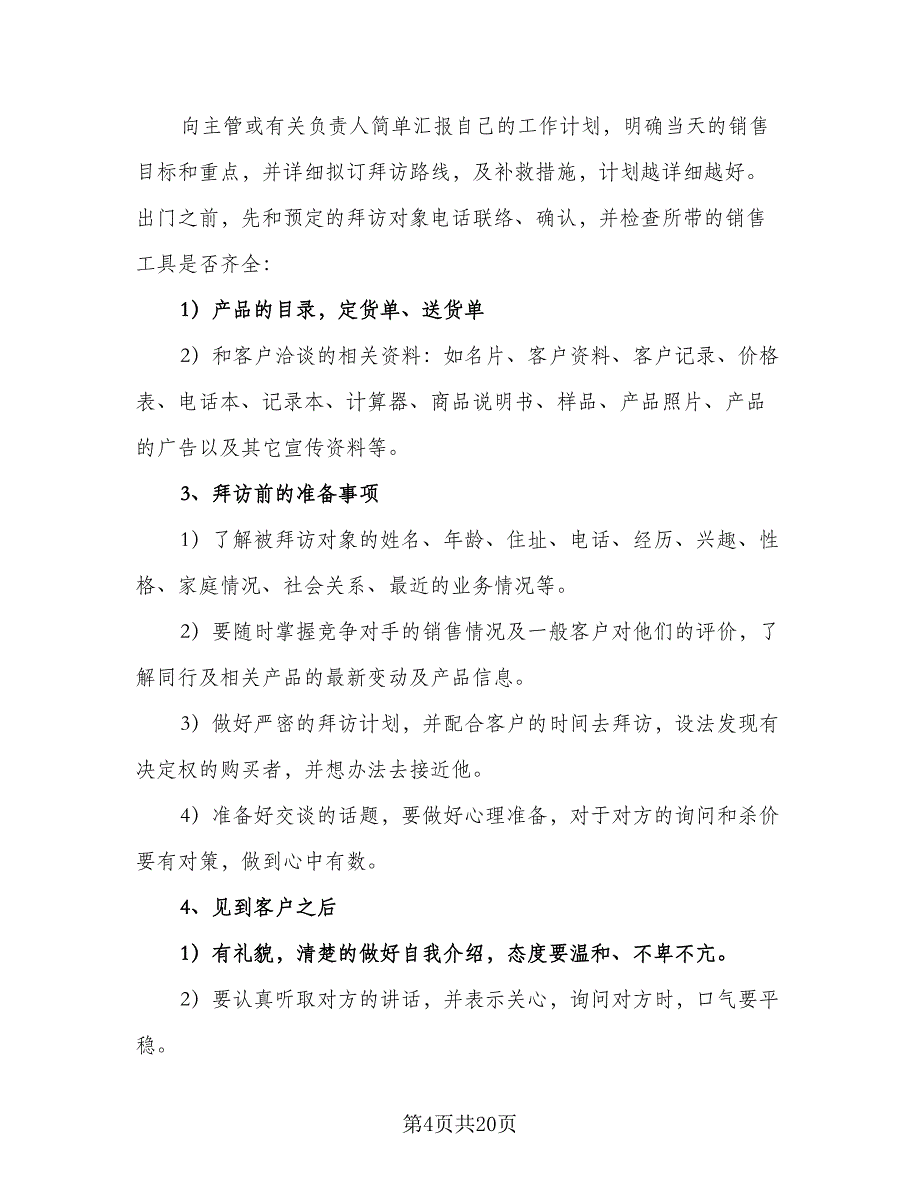 向主管或有关负责人简单汇报自己的工作计划，明确当天的销售
目标和重点，并详细拟订拜访路线，及补救措施，计划越详细越好。
出门之前，先和预定的拜访对象电话联络、确认，并检查所带的销售
工具是否齐全：
1）产品的目录，定货单、送货单
2）和客户洽谈的相关资料：如名片、客户资料、客户记录、价格
表、电话本、记录本、计算器、商品说明书、样品、产品照片、产品
的广告以及其它宣传资料等。
3、拜访前的准备事项
1）了解被拜访对象的姓名、年龄、住址、电话、经历、兴趣、性
格、家庭情况、社会关系、最近的业务情况等。
2）要随时掌握竞争对手的销售情况及一般客户对他们的评价，了
解同行及相关产品的最新变动及产品信息。
3）做好严密的拜访计划，并配合客户的时间去拜访，设法发现有
决定权的购买者，并想办法去接近他。
4）准备好交谈的话题，要做好心理准备，对于对方的询问和杀价
要有对策，做到心中有数。
4、见到客户之后
1）有礼貌，清楚的做好自我介绍，态度要温和、不卑不亢。
2）要认真听取对方的讲话，并表示关心，询问对方时，口气要平
稳。
第4页共20页